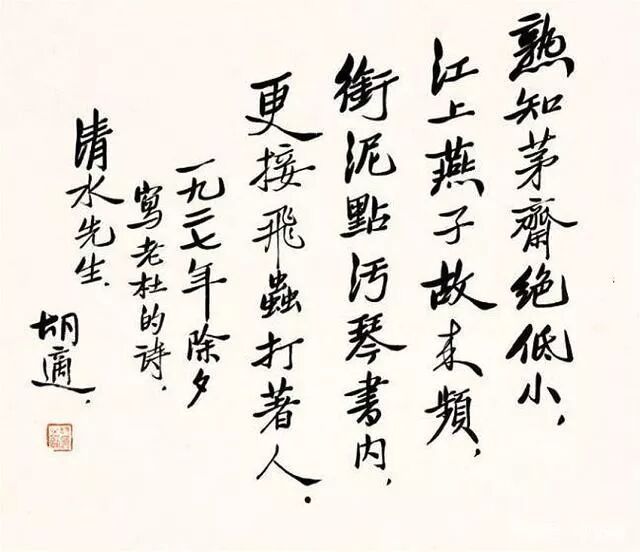 熟知茅齋絶低小，
江上燕子故来頻，
銜泥點汚琴書内，
更接飛蟲打著人．
一九二七年除夕
寫老杜的诗，
清水先生．
胡適．